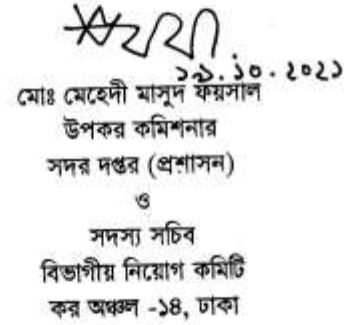 ২১.১০.২০২১
মোঃ মেহেদী মাসুদ ফয়সাল
উপকর কমিশনার
সদর দপ্তর (প্রশাসন)
ও
সদস্য সচিব
বিভাগীয় নিয়োগ কমিটি
কর অঞ্চল -১৪, ঢাকা